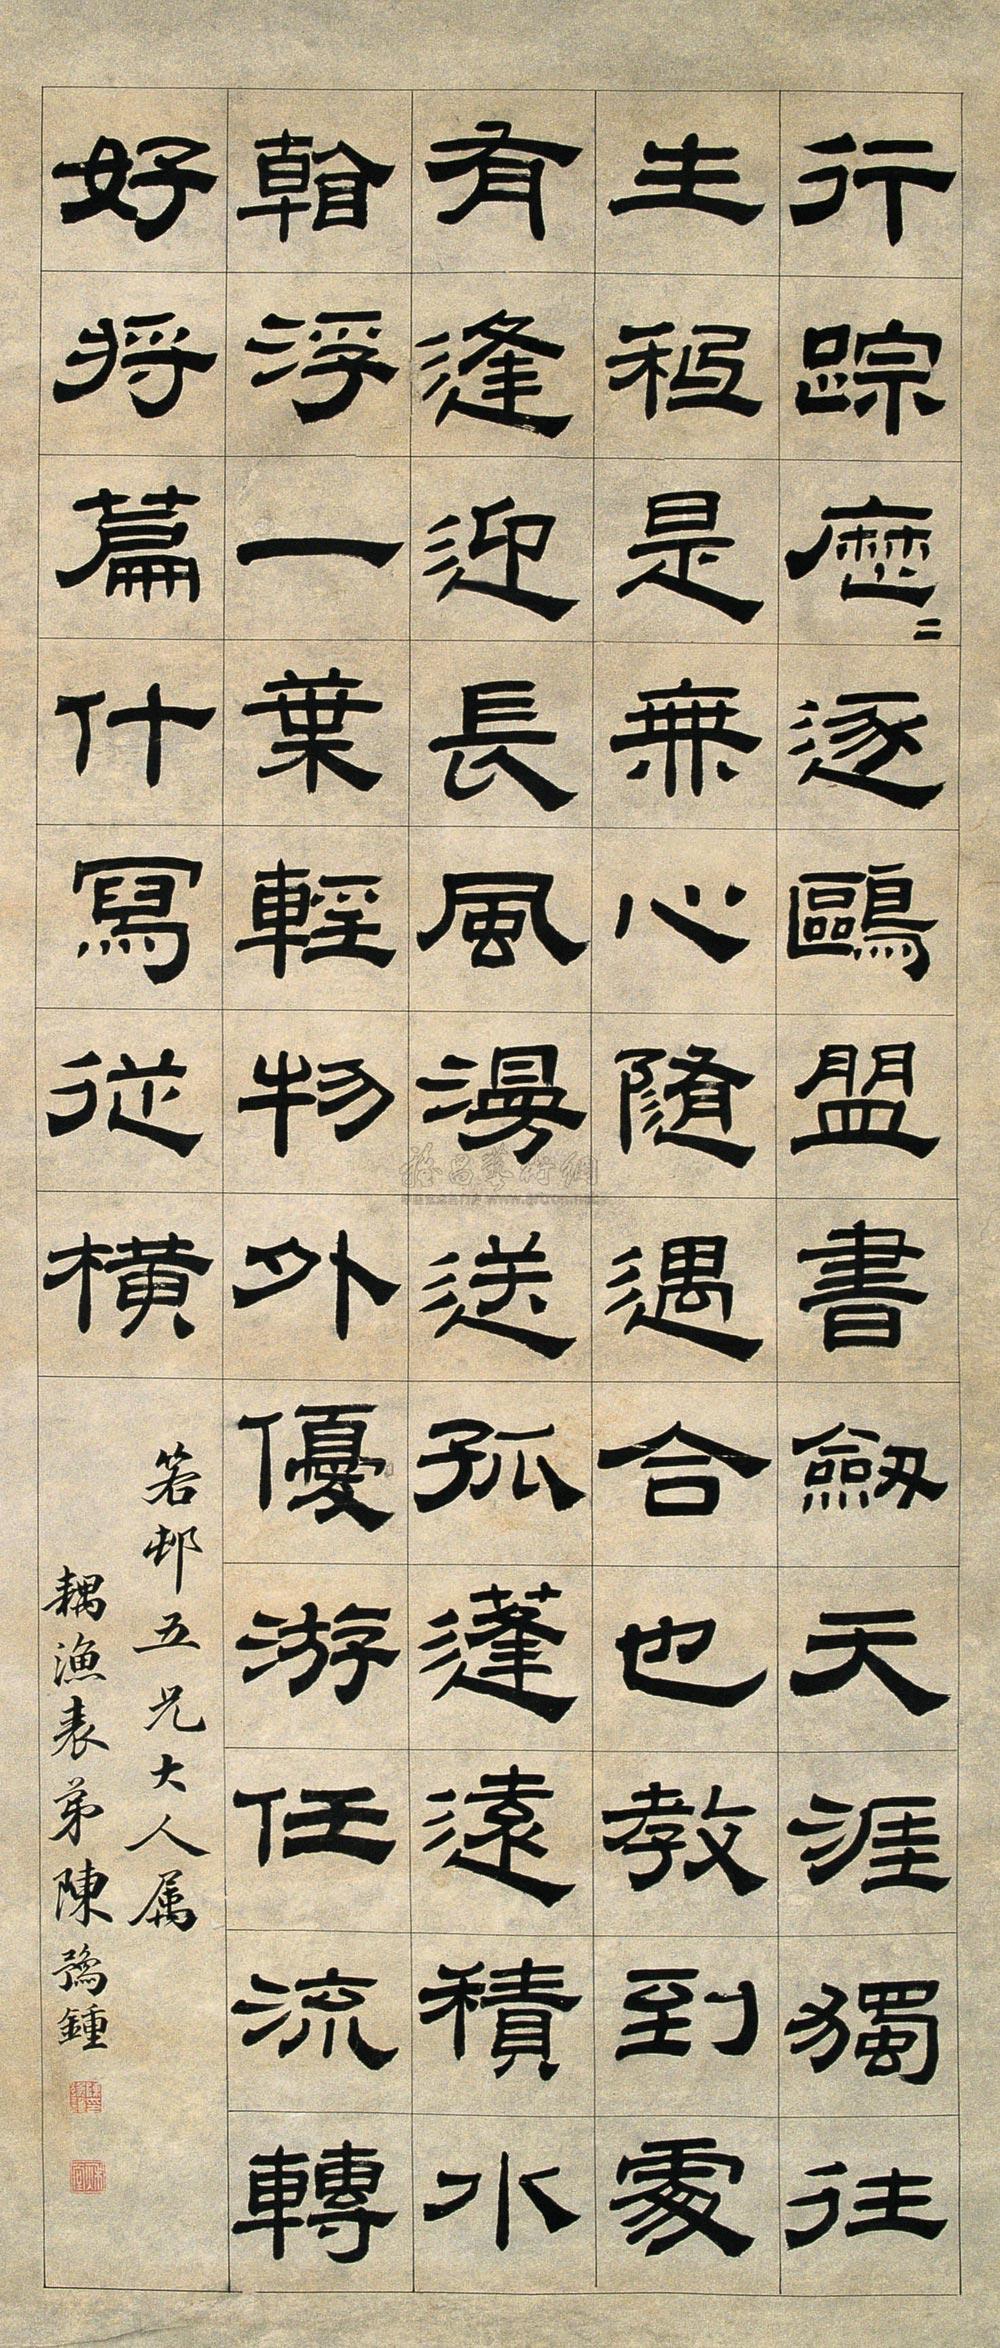 行踪歷〻逐鷗盟書劒天涯獨往
生秖是無心隨遇合也教到處
有逢迎長風漫送孤蓬遠積水
翰浮一葉輕物外優游任流轉
好將篇什寫從橫
箬邨五兄大人属
耦漁表弟陳豫鍾